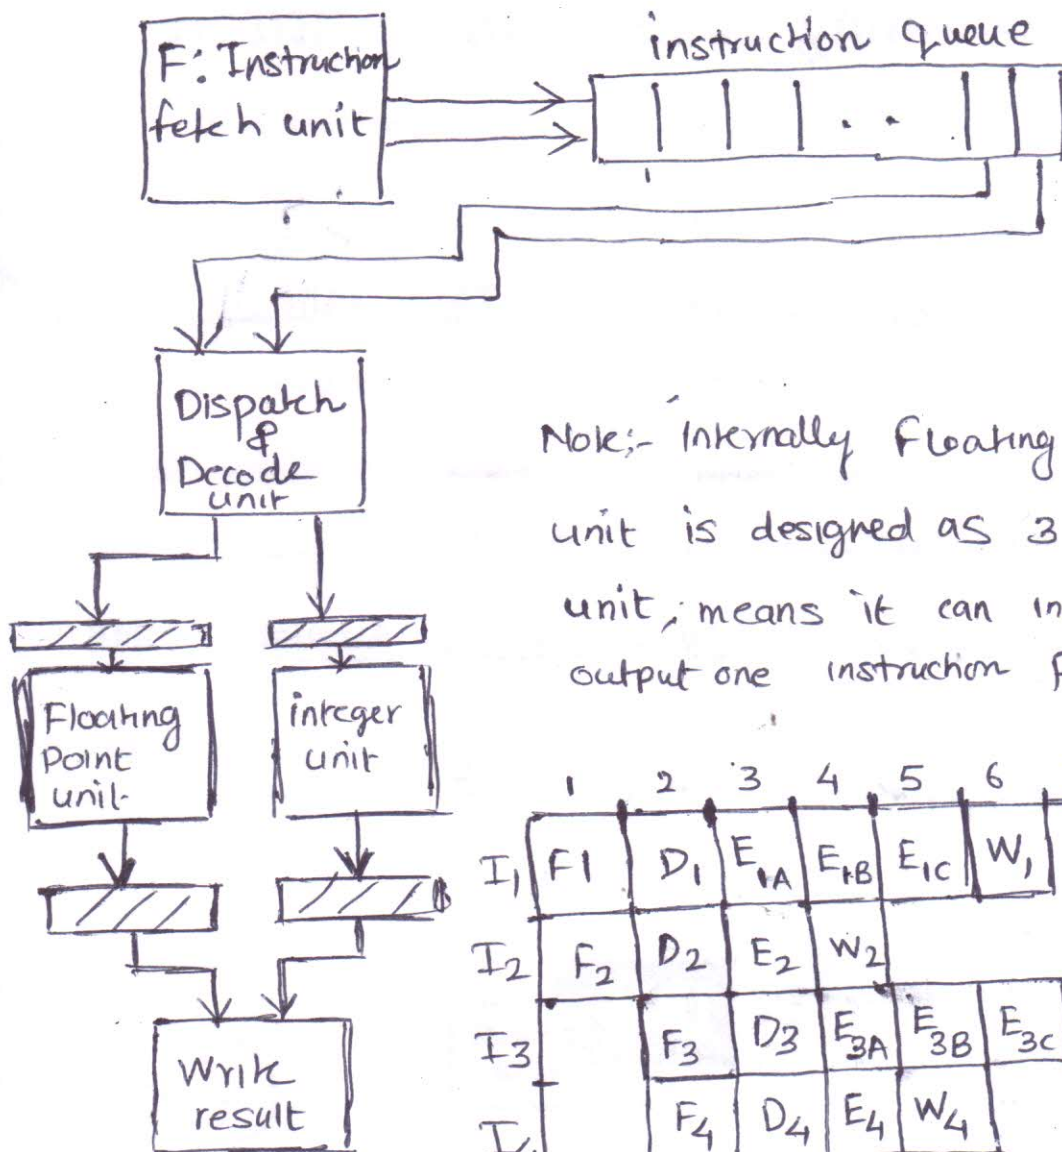 F: Instruction
fetch unit
instruction queue
Dispatch
&
Decode
unit
Note:- Internally Floating
unit is designed as 3
unit, means it can in
output one instruction
Floating
Point
unit
integer
unit
Write
result
1 2 3 4 5 6
I1 F1 D1 E1A E1B E1C W1
I2 F2 D2 E2 W2
I3 F3 D3 E3A E3B E3C
F4 D4 E4 W4